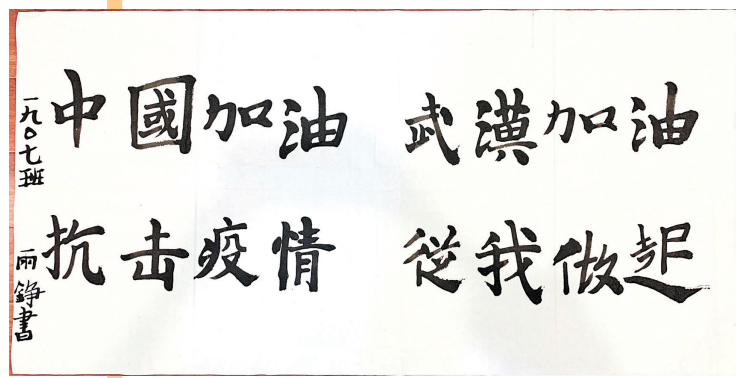 中國加油 武漢加油
抗击疫情 從我做起
一九〇七班 雨錚書